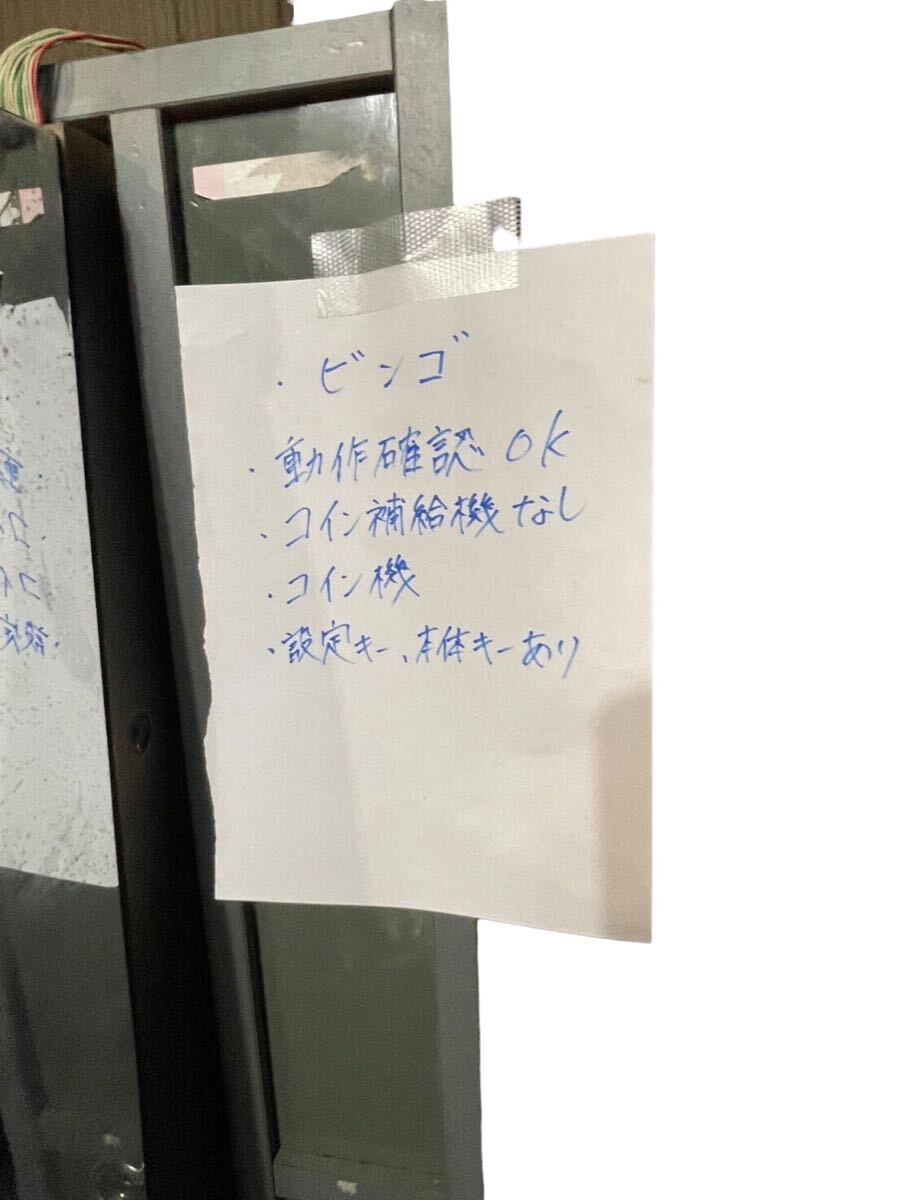 ・ビンゴ
・動作確認 OK
・コイン補給機なし
・コイン機
・設定キー、本体キーあり